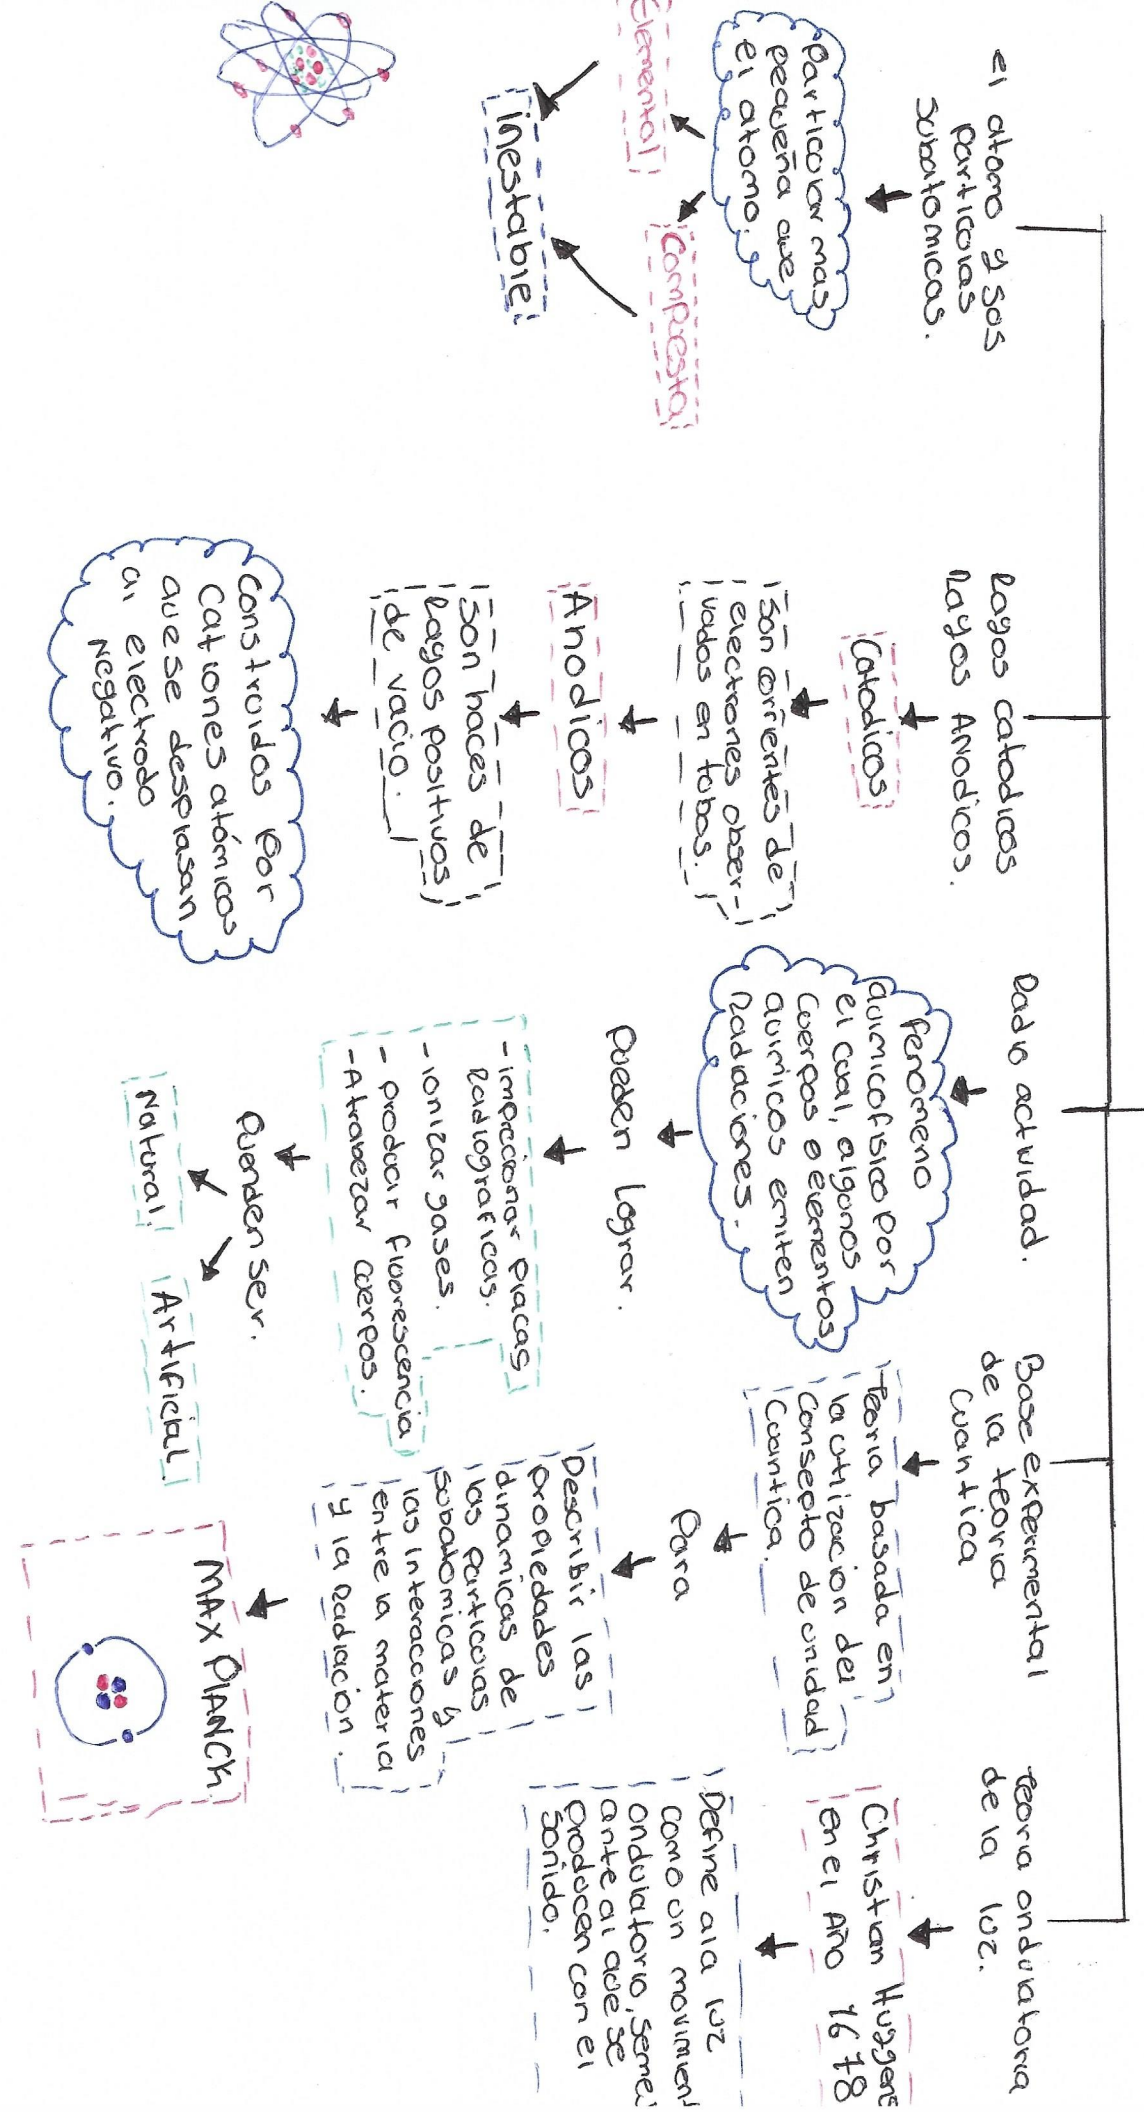 el atomo y sos
particolas
subatomicas.
particolar mas
pequeña que
el atomo.
Elemental
Compuesta
inestable
Rayos catodicos
Rayos Anodicos.
Catodicos
Son corrientes de
electrones obser-
vados en tobos.
Anodicos
Son haces de
Rayos positivos
de vacio.
Construidos por
Cationes atómicos
que se desplasan
al electrodo
Negativo.
Radio actividad.
fenomeno
quimicofisico por
el cual, algonos
cuerpos o elementos
quimicos emiten
Radiaciones.
Pueden lograr.
-impecionar placas
Radiograficas.
-ionizar gases.
- producir fluorescencia
-Atrabezar cuerpos.
Puenden ser.
Natural.
Artificial.
Base experimental
de la teoria
Cuantica
teoria basada en
la utilizacion del
Consepto de unidad
Cuantica.
Para
Describir las
propiedades
dinamicas de
las particolas
subatomicas y
las interacciones
entre la materia
y la Radiacion.
MAX PLANCK
teoria ondulatoria
de la luz.
Christian Huygens
en el Año 1678
Define a la luz
como un movimien
ondulatorio, semej
ante al que se
producen con el
sonido.